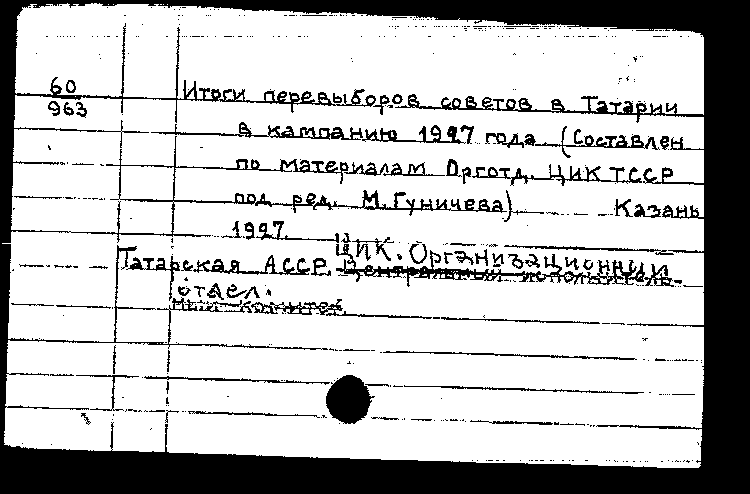 60
963
Итоги перевыборов советов в Татарии
в кампанию 1927 года. (Составлен
по материалам Орготд. ЦИК ТССР
под ред. М. Гуничева). Казань
1927.
ЦИК. Организационный
Татарская АССР. Центральный исполнитель-
отдел.
ный комитет.